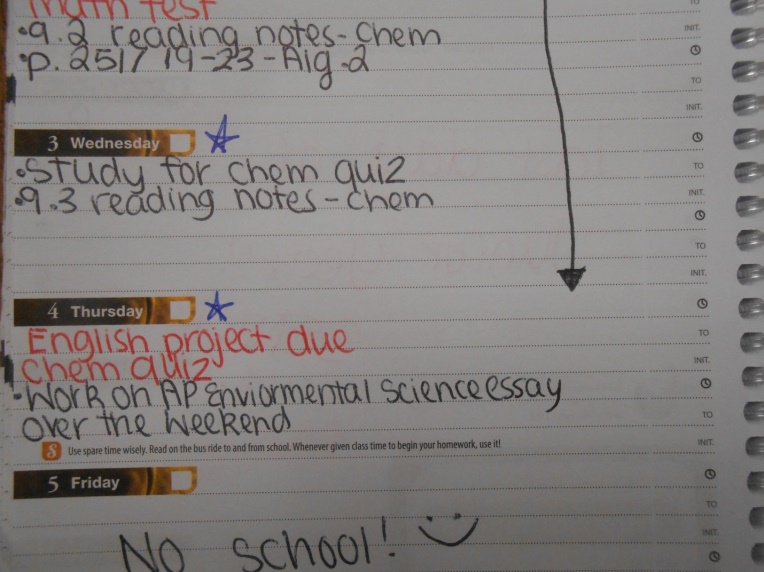 math test
•9.2 reading notes-Chem
•p. 251/ 19-23-Alg.2
3 Wednesday
•Study for chem quiz
•9.3 reading notes-chem
4 Thursday
English project due
chem quiz
•Work on AP Enviormental Science essay
over the weekend
S Use spare time wisely. Read on the bus ride to and from school. Whenever given class time to begin your homework, use it!
5 Friday
No school!
TO
INIT.
TO
INIT.
TO
INIT.
TO
INIT.
TO
INIT.
TO
INIT.
TO
INIT.